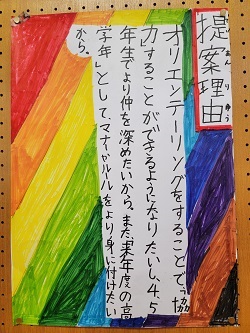 提案理由
オリエンテーリングをすることで、「協
力」することができるようになりたいし、4、5
年生でより仲を深めたいから。また、来年度の「高
学年」として、マナーやルールをより身に付けたい
から。